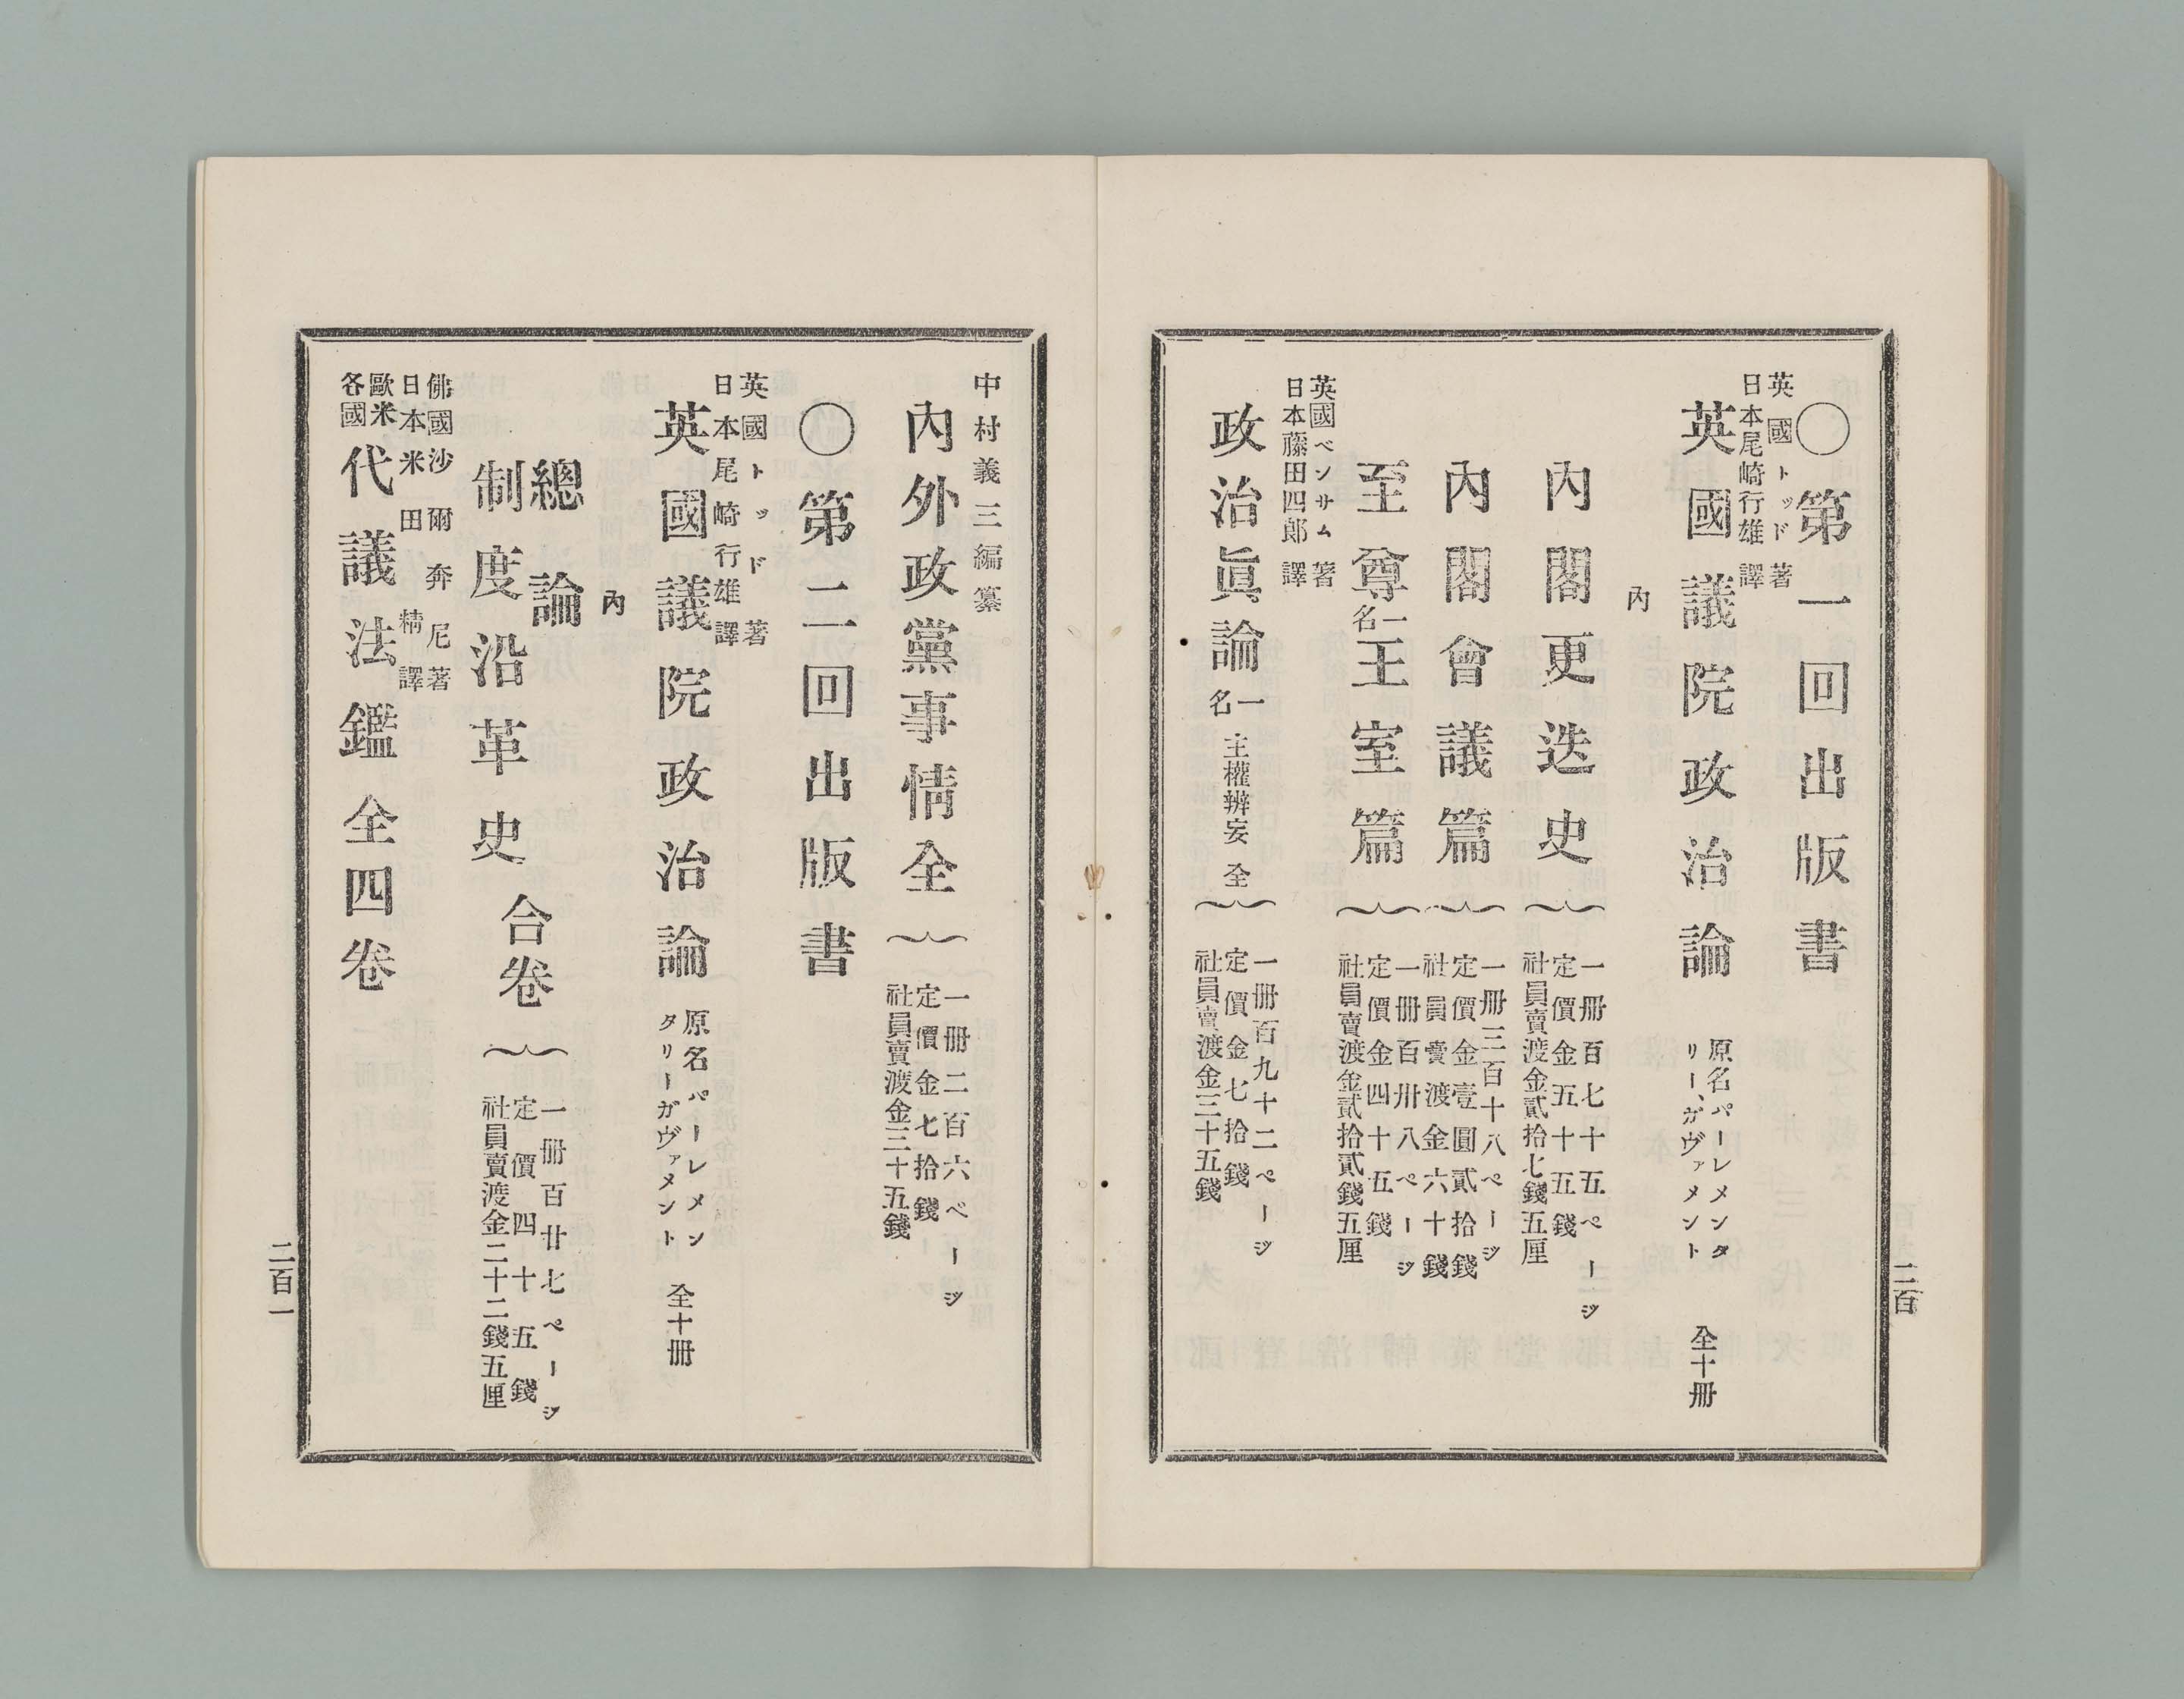 〇第一回出版書
英國トッド著
日本尾崎行雄譯
英國議院政治論
原名パーレメンタ
リー、ガヴァメント
全十冊
內
內閣更迭史
一冊百七十五ページ
定價金五十五錢
社員賣渡金貳拾七錢五厘
內閣會議篇
一冊三百十八ページ
定價金壹圓貳拾錢
社員賣渡金六十錢
至尊一名王室篇
一冊百卅八ページ
定價金四十五錢
社員賣渡金貳拾貳錢五厘
英國ベンサム著
日本藤田四郎譯
政治眞論一名主權辨妄 全
一冊百九十二ページ
定價金七拾錢
社員賣渡金三十五錢
二百
中村義三編纂
內外政黨事情全
一冊二百六ページ
定價金七拾錢
社員賣渡金三十五錢
〇第二回出版書
英國トッド著
日本尾崎行雄譯
英國議院政治論
原名パーレメン
タリーガヴァメント
全十冊
內
總論
制度沿革史
合卷
一冊百廿七ページ
定價四十五錢
社員賣渡金二十二錢五厘
佛國沙爾奔尼著
日本米田精譯
歐米
各國
代議法鑑全四卷
二百一